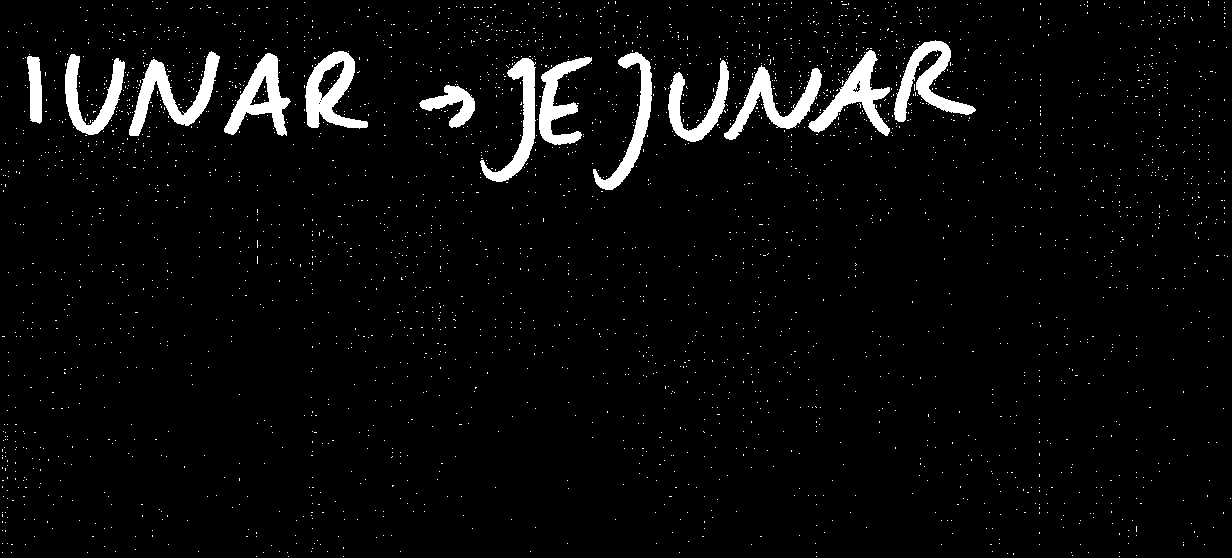 IUNAR → JEJUNAR